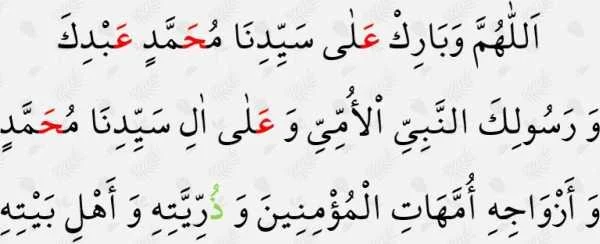 اَللّٰهُمَّ وَبَارِكْ عَلٰى سَيِّدِنَا مُحَمَّدٍ عَبْدِكَ
وَ رَسُولِكَ النَّبِيِّ اْلأُمِّيِّ وَ عَلٰى اٰلِ سَيِّدِنَا مُحَمَّدٍ
وَ أَزْوَاجِهِ أُمَّهَاتِ الْمُؤْمِنِينَ وَ ذُرِّيَّتِهِ وَ أَهْلِ بَيْتِهِ